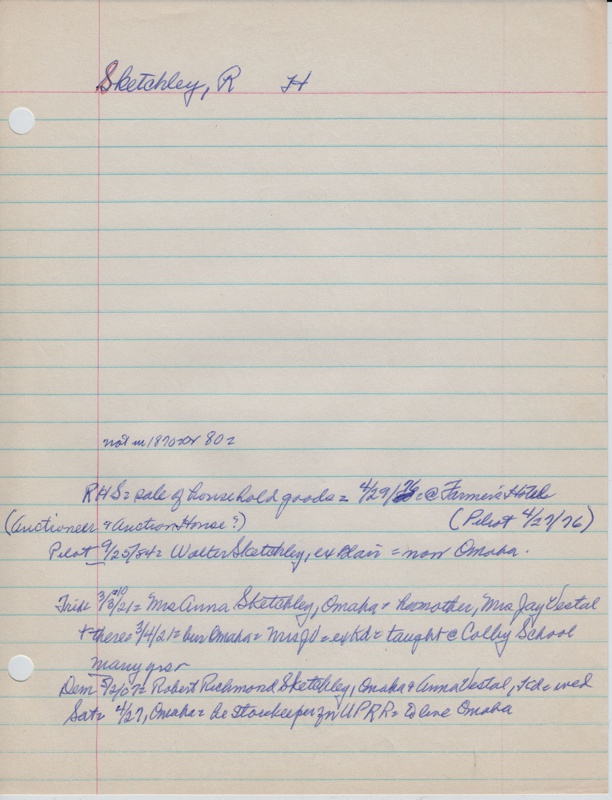 Sketchley, R H
not in 1870 or 80 =
RHS = sale of household goods = 4/29/76 = @ Farmer's Hotel
(Auctioneer & Auction House?) (Pilot 4/27/76)
Pilot 9/25/84 = Walter Sketchley, ex Blair = now Omaha.
Trib 3/3/21 = Mrs Anna Sketchley, Omaha & her mother, Mrs Jay Vestal
& there = 3/4/21 = bur Omaha = Mrs JV = ex Kd = taught @ Colby School
many yrs
Dem 5/2/07 = Robert Richmond Sketchley, Omaha & Anna Vestal, Kd = wed
Sat = 4/27, Omaha = he storekeeper for UPRR = to live Omaha